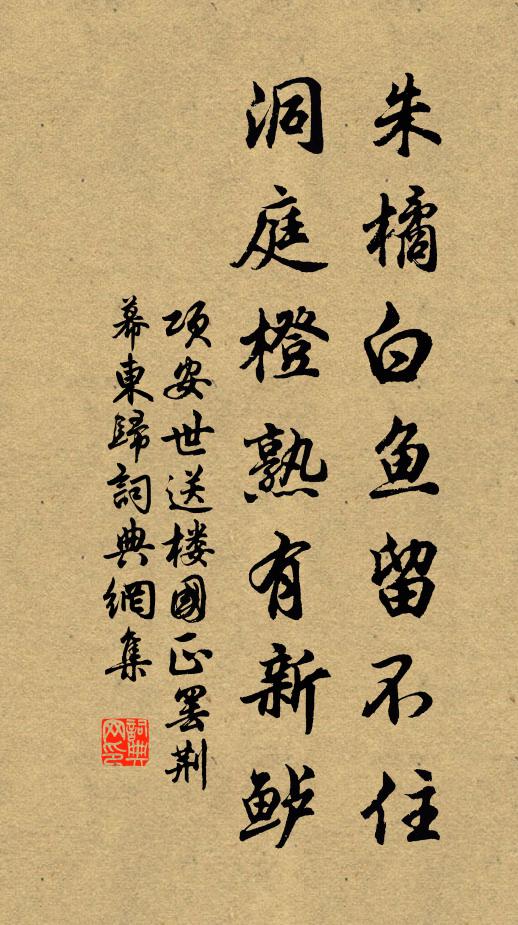 朱橘白鱼留不住
洞庭橙熟有新鲈
项安世送楼國正罢荆
幕東歸詞典網集
詞典网印